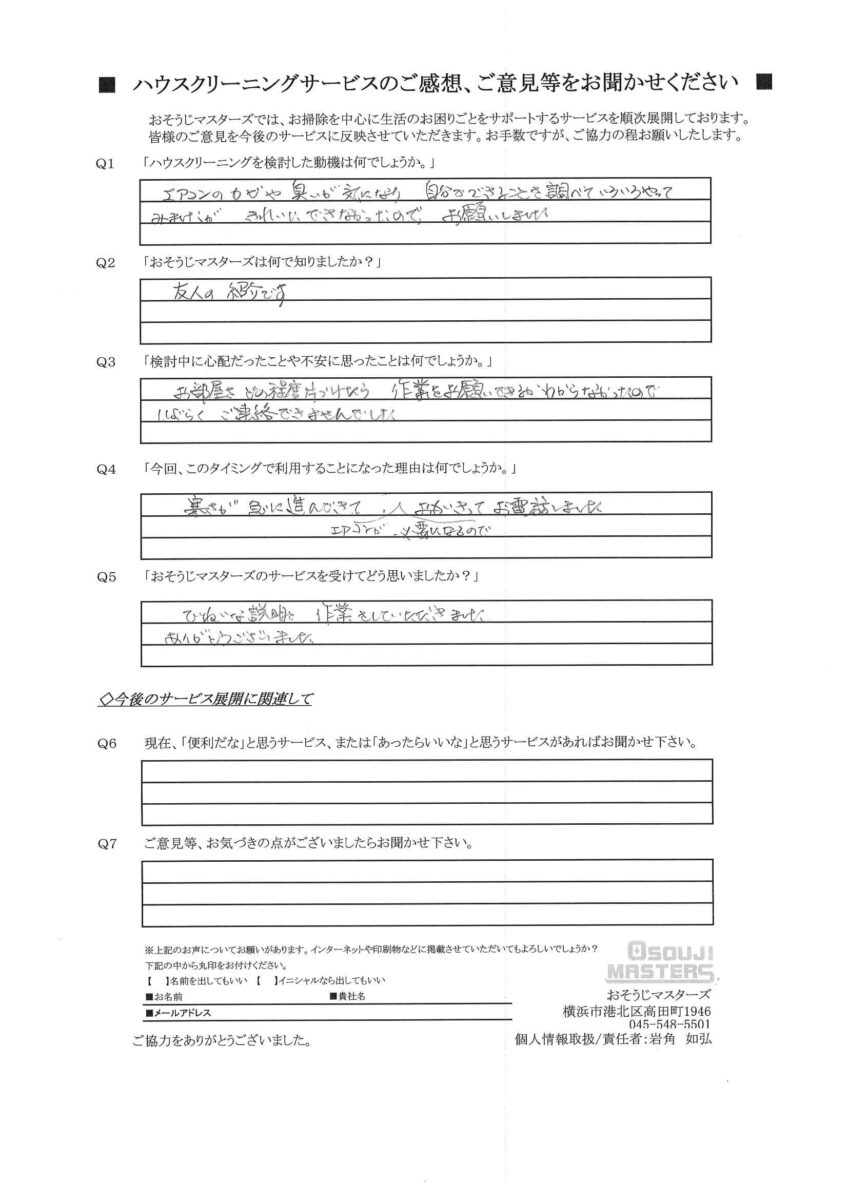 ■ ハウスクリーニングサービスのご感想、ご意見等をお聞かせください ■
おそうじマスターズでは、お掃除を中心に生活のお困りごとをサポートするサービスを順次展開しております。
皆様のご意見を今後のサービスに反映させていただきます。お手数ですが、ご協力の程お願いしたします。
Q1 「ハウスクリーニングを検討した動機は何でしょうか。」
エアコンのカビや 臭いが 気になり 自分でできることを調べていろいろやって
みましたが きれいに できなかったので お願いしました
Q2 「おそうじマスターズは何で知りましたか？」
友人の 紹介です
Q3 「検討中に心配だったことや不安に思ったことは何でしょうか。」
お部屋を どの程度片づけたら 作業をお願いできるかわからなかったので
しばらく ご連絡できませんでした
Q4 「今回、このタイミングで利用することになった理由は何でしょうか。」
寒さが 急に進んできて 、 おもいきって お電話しました
エアコンが 必要になるので
Q5 「おそうじマスターズのサービスを受けてどう思いましたか？」
ていねいな説明と 作業をしていただきました
ありがとうございました
◇今後のサービス展開に関連して
Q6 現在、「便利だな」と思うサービス、または「あったらいいな」と思うサービスがあればお聞かせ下さい。
Q7 ご意見等、お気づきの点がございましたらお聞かせ下さい。
※上記のお声についてお願いがあります。インターネットや印刷物などに掲載させていただいてもよろしいでしょうか？
下記の中から丸印をお付けください。
【 】名前を出してもいい 【 】イニシャルなら出してもいい
■お名前 ■貴社名
■メールアドレス
ご協力をありがとうございました。
OSOUJI
MASTERS
おそうじマスターズ
横浜市港北区高田町1946
045-548-5501
個人情報取扱/責任者：岩角 如弘